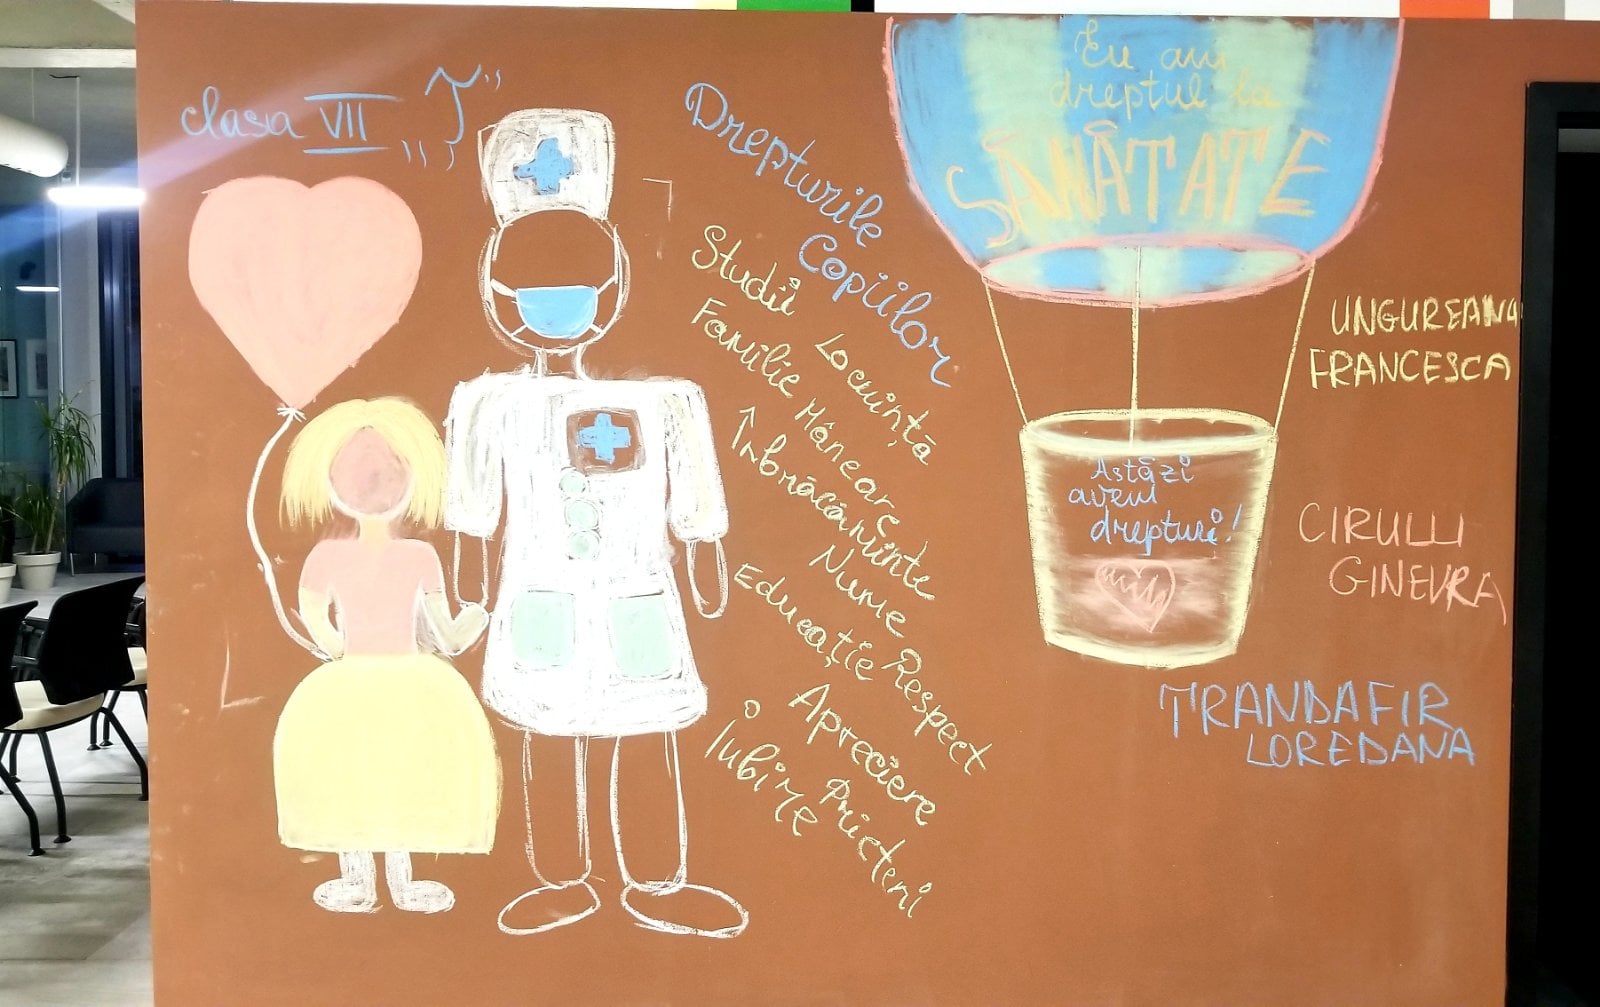 clasa VII „I”
Drepturile
Copiilor
Studii Locuință
Familie Mâncare
Îmbrăcăminte
Nume
Educație Respect
Apreciere
Iubire Prieteni
Eu am
dreptul la
SĂNĂTATE
Astăzi
avem
drepturi!
UNGUREANU
FRANCESCA
CIRULLI
GINEVRA
TRANDAFIR
LOREDANA